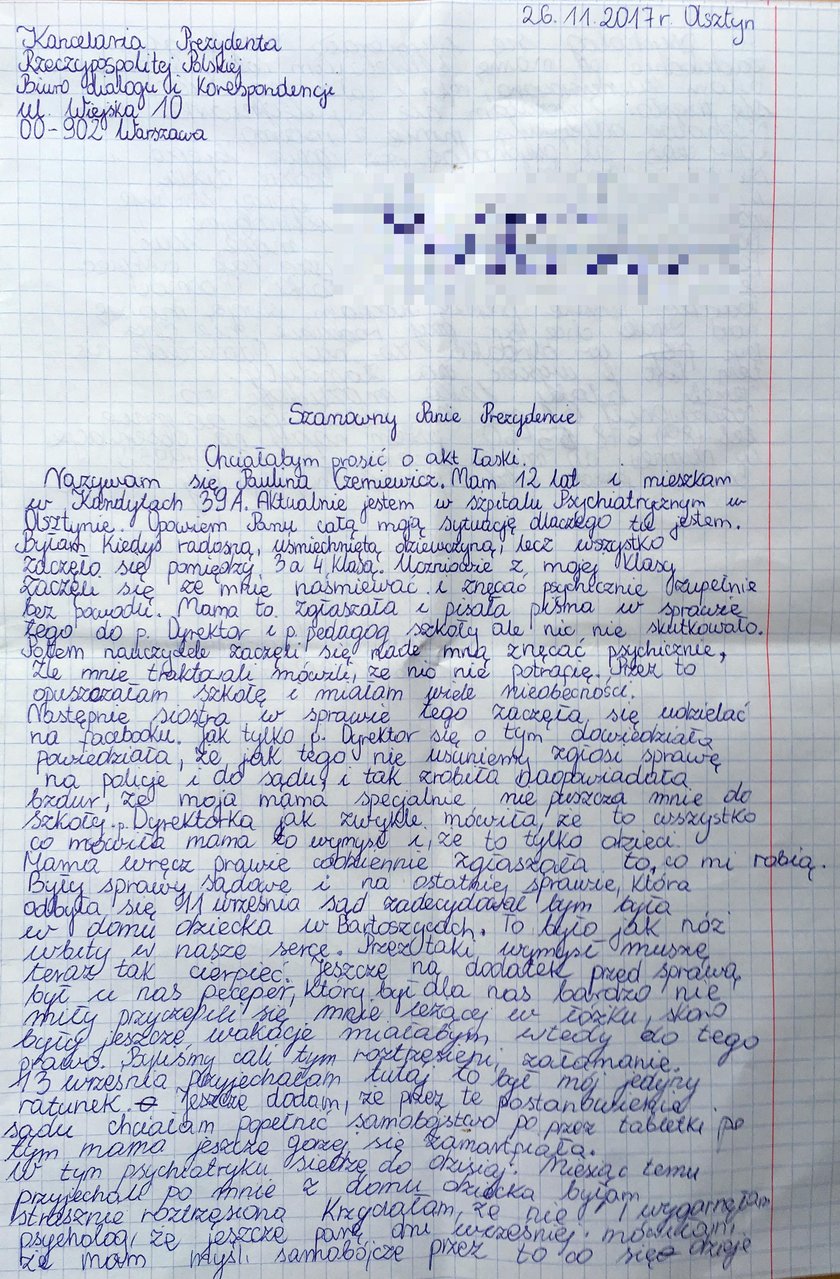 26.11.2017r. Olsztyn
Kancelaria Prezydenta
Rzeczypospolitej Polskiej
Biuro dialogu i Korespondencji
ul. Wiejska 10
00-902 Warszawa
Szanowny Panie Prezydencie
Chciałabym prosić o akt łaski.
Nazywam się Paulina Czemiewicz. Mam 12 lat i mieszkam
w Kandytach 39A. Aktualnie jestem w szpitalu Psychiatrycznym w
Olsztynie. Opowiem Panu całą moją sytuację dlaczego tu jestem.
Byłam kiedyś radosną, uśmiechniętą dziewczyną, lecz wszystko
zaczęło się pomiędzy 3 a 4 klasą. Uczniowie z mojej klasy
zaczęli się ze mnie naśmiewać i znęcać psychicznie zupełnie
bez powodu. Mama to zgłaszała i pisała pisma w sprawie
tego do p. Dyrektor i p. pedagog szkoły ale nic nie skutkowało.
Potem nauczyciele zaczęli się nade mną znęcać psychicznie,
źle mnie traktowali mówili, że nic nie potrafię. Przez to
opuszczałam szkołę i miałam wiele nieobecności.
Następnie siostra w sprawie tego zaczęła się udzielać
na facebooku. Jak tylko p. Dyrektor się o tym dowiedziała
powiedziała, że jak tego nie usuniemy zgłosi sprawę
na policje i do sądu, i tak zrobiła naopowiadała
bzdur, że moja mama specjalnie nie puszcza mnie do
szkoły. Dyrektorka jak zwykle mówiła, że to wszystko
co mówiła mama to wymysł i, że to tylko dzieci.
Mama wręcz prawie codziennie zgłaszała to, co mi robią.
Były sprawy sądowe i na ostatniej sprawie, która
odbyła się 11 września sąd zadecydował bym była
w domu dziecka w Bartoszycach. To było jak nóż
wbity w nasze serce. Przez taki wymysł muszę
teraz tak cierpieć. Jeszcze na dodatek przed sprawą
był u nas peceper, który był dla nas bardzo nie
miły przyczepili się mnie leżącej w łóżku, skoro
były jeszcze wakacje miałabym wtedy do tego
prawo. Byliśmy cali tym roztrzęsieni, załamanie.
13 września przyjechałam tutaj to był mój jedyny
ratunek. Jeszcze dodam, że przez te postanowienie
sądu chciałam popełnić samobójstwo po przez tabletki po
tym mama jeszcze gorzej się zamartwiała.
W tym psychiatryku siedzę do dzisiaj. Miesiąc temu
przyjechali po mnie z domu dziecka byłam
strasznie roztrzęsiona Krzyczałam, że nie! I wygarnęłam
psycholog, że jeszcze parę dni wcześniej mówiłam,
że mam myśli samobójcze przez to co się dzieje